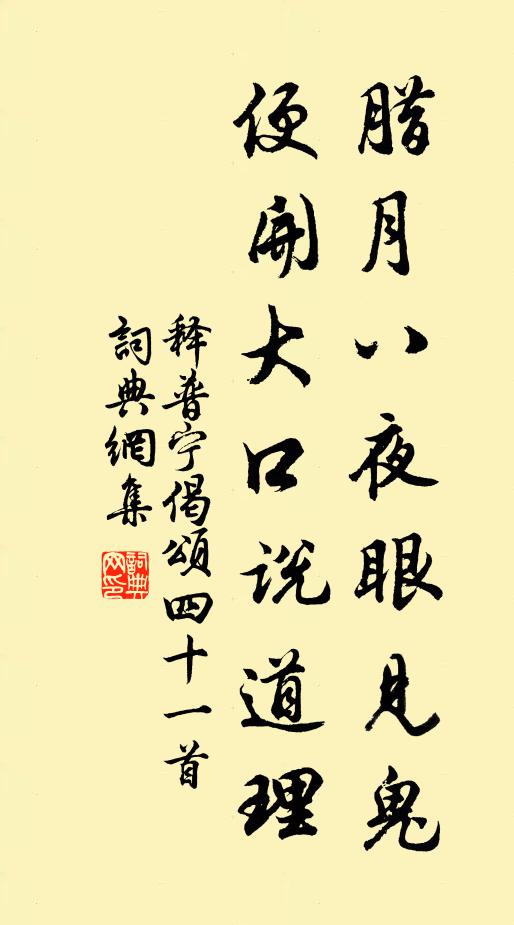 腊月八夜眼见鬼
便開大口说道理
释普宁偈頌四十一首
詞典網集
詞典网印